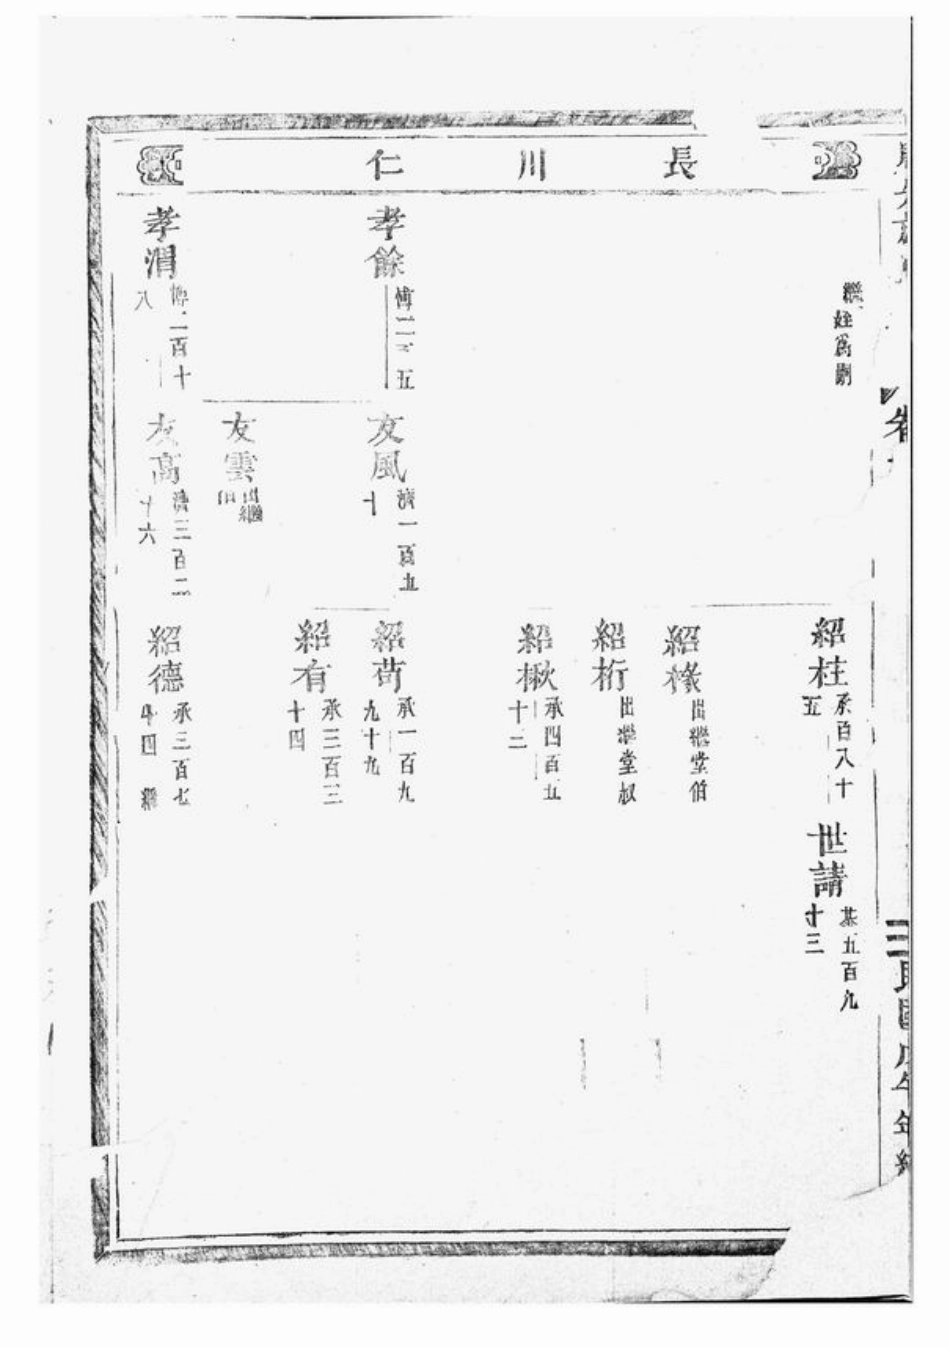 長川仁
繼姪爲嗣
紹柱
承百八十
五
世請
基五百九
十三
紹椽
出繼堂伯
紹桁
出繼堂叔
紹楸
承四百五
十二
孝餘
五
友風
濟一百五
十
紹苛
承一百九
九十九
紹有
承三百三
十四
友雲
出繼
孝渭
博二百十
八
友高
濟三百二
十六
紹德
承三百七
十四 繼
民國戊午年